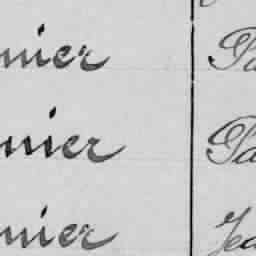 nier Pa
nier Pa
nier Jea